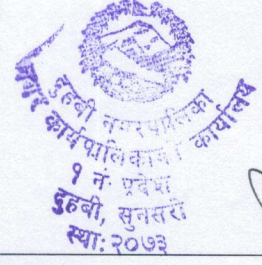 दुहबी नगरपालिका
नगर कार्यपालिकाको कार्यालय
१ नं. प्रदेश
दुहबी, सुनसरी
स्था: २०७३